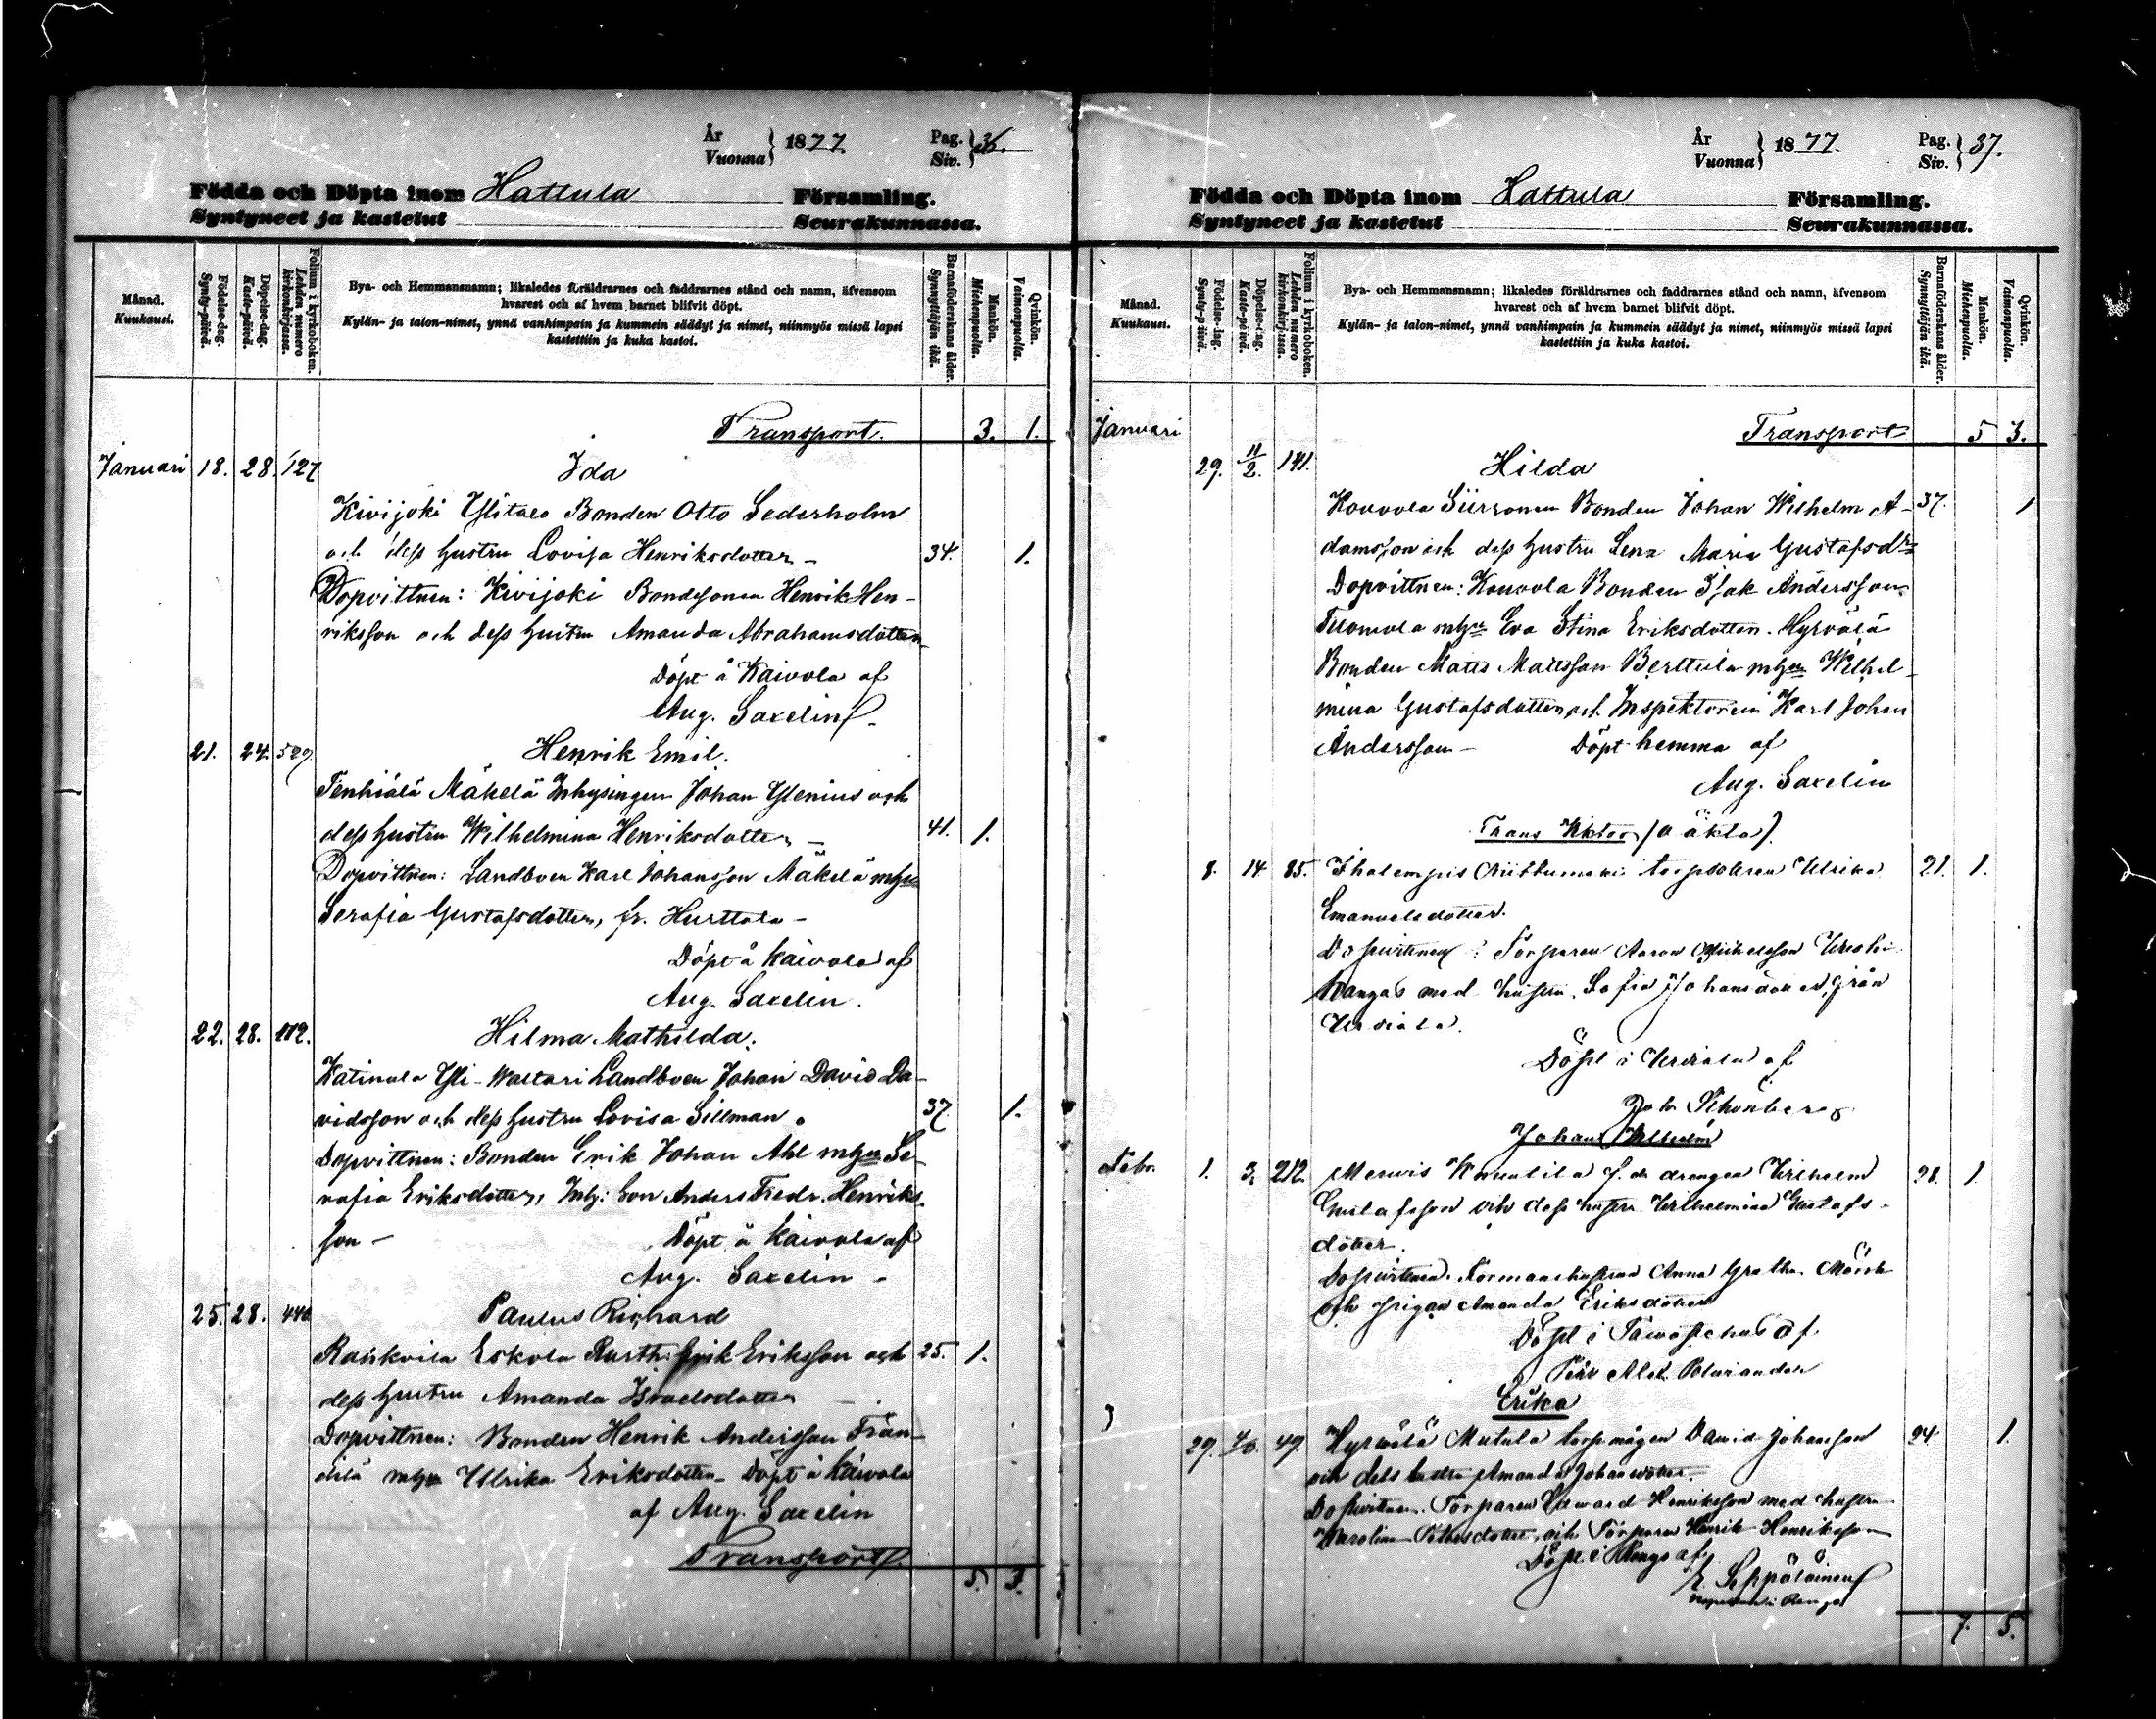 År
Vuonna } 1877. Pag. Siv. } 36.
Födda och Döpta inom Hattula Församling.
Syntyneet ja kastetut Seurakunnassa.
Månad. Kuukausi.
Födelse-dag. Synty-päivä.
Döpelse-dag. Kaste-päivä.
Folium i kyrkoboken. Lehden numero kirkonkirjassa.
Bya- och Hemmansnamn; likaledes föräldrarnes och faddrarnes stånd och namn, äfvensom
hvarest och af hvem barnet blifvit döpt.
Kylän- ja talon-nimet, ynnä vanhimpain ja kummein säädyt ja nimet, niinmyös missä lapsi
kastettiin ja kuka kastoi.
Barnaföderskans ålder. Synnyttäjän ikä.
Mankön. Miehenpuolia.
Qvinkön. Vaimonpuolia.
Transport. 3. 1.
Januari 18. 28. 127 Ida
Kivijoki Ylitalo Bonden Otto Sederholm
och dess hustru Lovisa Henriksdotter – 34. 1.
Dopvittnen: Kivijoki Bondesonen Henrik Hen-
riksson och dess hustru Amanda Abrahamsdotter
Döpt å Kaivola af
Aug. Saxelin
21. 24. 529 Henrik Emil.
Tenhiälä Mäkelä Inhysingen Johan Glenius och
dess hustru Wilhelmina Henriksdotter – 41. 1.
Dopvittnen: Landboen Karl Johansson Mäkelä mhu
Serafia Gustafsdotter, fr. Hurttala –
Döpt å Kaivola af
Aug. Saxelin.
22. 28. 112. Hilma Mathilda.
Katinala Yli-Waltari Landboen Johan David Da-
vidsson och dess hustru Lovisa Sillman. 37 1.
Dopvittnen: Bonden Erik Johan Ahl mhu Se-
rafia Eriksdotter, Inh: son Anders Fredr. Henriks-
son – Döpt å Kaivola af
Aug. Saxelin –
25. 28. 440 Paulus Richard
Rahkoila Eskola Rusth: Erik Eriksson och 25. 1.
dess hustru Amanda Israelsdotter –
Dopvittnen: Bonden Henrik Andersson
mhu Ullrika Eriksdotter – Döpt å Kaivola
af Aug. Saxelin
Transport 5. 3.
År
Vuonna } 1877. Pag. Siv. } 37.
Födda och Döpta inom Hattula Församling.
Syntyneet ja kastetut Seurakunnassa.
Månad. Kuukausi.
Födelse-dag. Synty-päivä.
Döpelse-dag. Kaste-päivä.
Folium i kyrkoboken. Lehden numero kirkonkirjassa.
Bya- och Hemmansnamn; likaledes föräldrarnes och faddrarnes stånd och namn, äfvensom
hvarest och af hvem barnet blifvit döpt.
Kylän- ja talon-nimet, ynnä vanhimpain ja kummein säädyt ja nimet, niinmyös missä lapsi
kastettiin ja kuka kastoi.
Barnaföderskans ålder. Synnyttäjän ikä.
Mankön. Miehenpuolia.
Qvinkön. Vaimonpuolia.
Januari Transport 5 3.
29. 11/2. 141. Hilda
Kouvola Siirronen Bonden Johan Wilhelm A- 37. 1
damsson och dess hustru Lena Maria Gustafsdr
Dopvittnen: Kouvola Bonden Isak Andersson
Tuomola mhu Eva Stina Eriksdotter. Hyrvälä
Bonden Matts Mattsson Berttula mhu Wilhel-
mina Gustafsdotter, och Inspektoren Karl Johan
Andersson – Döpt hemma af
Aug. Saxelin
Frans Viktor (oäkta).
8. 14 85. Ihalempis torpdottren Ulrika 21. 1.
Emanuelsdotter.
Dopvittnen: Torparen Aaron Michelsson
Kangas med hustru Sofia Johansdotter, från
Urdiala.
Döpt i Urdiala af
Joh. Schönberg
Johan Wilhelm
Febr. 1. 3. 212. Merwis f.d. drengen Wilhelm 28. 1.
Gustafsson och dess hustru Wilhelmina Gustafs-
dotter.
Dopvittnen. Formanshustrun Anna Gretha
och pigan Amanda Eriksdotter
Döpt i Tawastehus af
Alex.
Erika
29. 49. Hyrwälä Mutula torpmågen David Johansson 24. 1.
och dess hustru Amanda Johansdotter.
Dopvittnen. Torparen Edward Henriksson med hustru
Karolina och Torparen Henrik Henriksson
Döpt i Rengo af
E. Seppäläinen
i Rengo
7. 5.